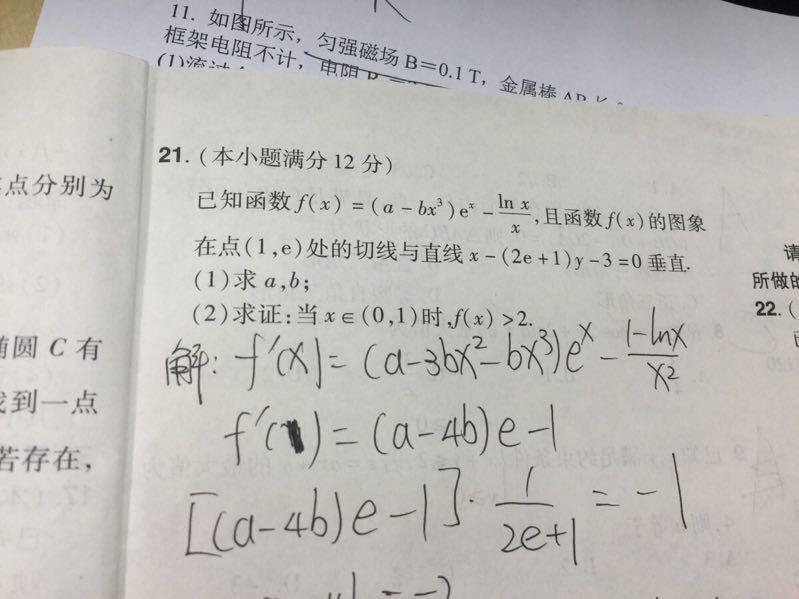 11. 如图所示，匀强磁场 B＝0.1 T，金属棒 AB 长
框架电阻不计，电阻 R
点分别为
21. (本小题满分 12 分)
已知函数 f(x) = (a - bx³)eˣ - ln x/x, 且函数 f(x) 的图象
在点(1,e)处的切线与直线 x-(2e+1)y-3=0 垂直.
(1) 求 a,b;
(2) 求证: 当 x∈(0,1)时, f(x)>2.
圆 C 有
找到一点
若存在，
请
所做的
22. (
解: f'(x) = (a-3bx²-bx³)eˣ - 1-lnx/x²
f'(1) = (a-4b)e-1
[(a-4b)e-1]·1/2e+1 = -1